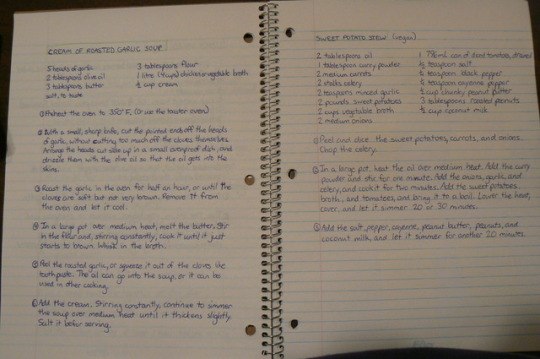 CREAM OF ROASTED GARLIC SOUP
5 heads of garlic
2 tablespoons olive oil
3 tablespoons butter
salt, to taste
3 tablespoons flour
1 litre (4 cups) chicken or vegetable broth
½ cup cream
① Preheat the oven to 350°F. (Or use the toaster oven)
② With a small, sharp knife, cut the pointed ends off the heads
of garlic, without cutting too much off the cloves themselves.
Arrange the heads cut side up in a small ovenproof dish, and
drizzle them with the olive oil so that the oil gets into the
skins.
③ Roast the garlic in the oven for half an hour, or until the
cloves are soft but not very brown. Remove it from
the oven and let it cool.
④ In a large pot over medium heat, melt the butter. Stir
in the flour and, stirring constantly, cook it until it just
starts to brown. Whisk in the broth.
⑤ Peel the roasted garlic, or squeeze it out of the cloves like
toothpaste. The oil can go into the soup, or it can be
used in other cooking.
⑥ Add the cream. Stirring constantly, continue to simmer
the soup over medium heat until it thickens slightly.
Salt it before serving.
SWEET POTATO STEW (vegan)
2 tablespoons oil
1 tablespoon curry powder
2 medium carrots
2 stalks celery
2 teaspoons minced garlic
2 pounds sweet potatoes
2 cups vegetable broth
2 medium onions
1 796 mL can of diced tomatoes,
teaspoon salt
teaspoon black pepper
teaspoon cayenne pepper
cup chunky peanut butter
3 tablespoons roasted peanuts
cup coconut milk
① Peel and dice the sweet potatoes, carrots, and onions.
Chop the celery.
② In a large pot, heat the oil over medium heat. Add the curry
powder and stir for one minute. Add the onions, garlic, and
celery, and cook it for two minutes. Add the sweet potatoes,
broth, and tomatoes, and bring it to a boil. Lower the heat,
cover, and let it simmer 20 or 30 minutes.
③ Add the salt, pepper, cayenne, peanut butter, peanuts, and
coconut milk, and let it simmer for another 20 minutes.